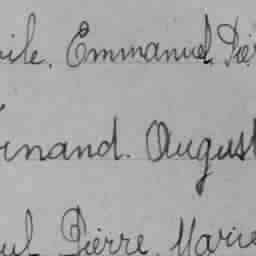 ile. Emmanuel. Pier
inand. August
ul Pierre. Marie